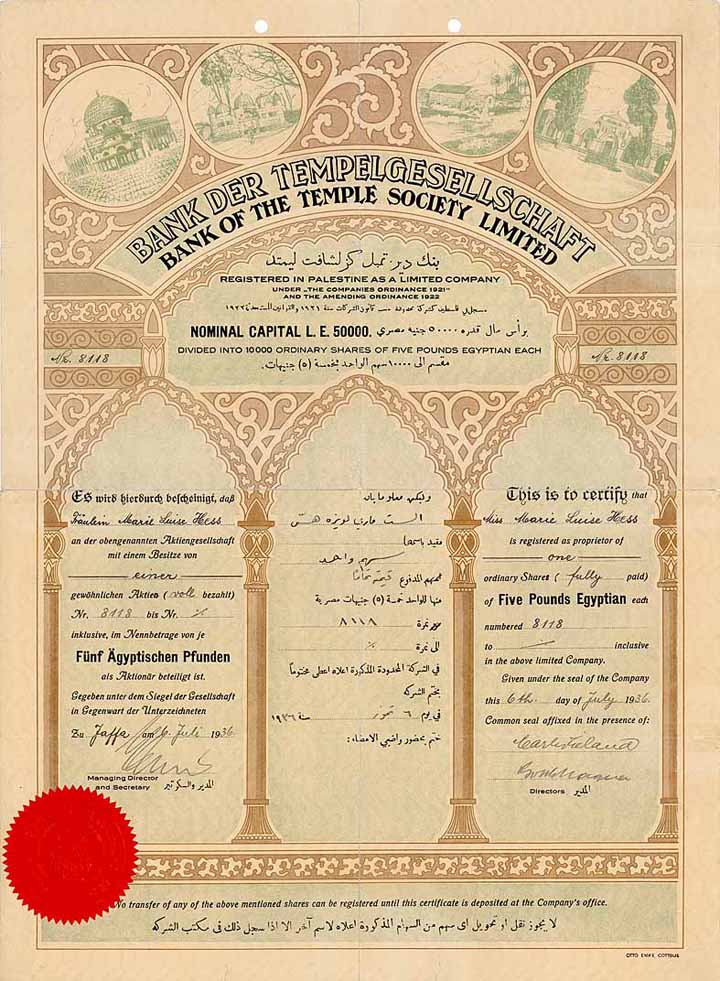 BANK DER TEMPELGESELLSCHAFT
BANK OF THE TEMPLE SOCIETY LIMITED
بنك دير تمبل كزلشافت ليمتد
REGISTERED IN PALESTINE AS A LIMITED COMPANY
UNDER „THE COMPANIES ORDINANCE 1921"
AND THE AMENDING ORDINANCE 1922
مسجل في فلسطين كشركة محدودة حسب قانون الشركات سنة ١٩٢١ والقوانين المعدلة ١٩٢٢
NOMINAL CAPITAL L. E. 50000. برأس مال قدره ٥٠٠٠٠ جنيه مصري
DIVIDED INTO 10000 ORDINARY SHARES OF FIVE POUNDS EGYPTIAN EACH
مقسم الى ١٠٠٠٠ سهم الواحد بخمسة (٥) جنيهات.
Nr. 8118
Nr. 8118
Es wird hierdurch bescheinigt, daß
Fräulein Marie Luise Hess
an der obengenannten Aktiengesellschaft
mit einem Besitze von
einer
gewöhnlichen Aktien (voll bezahlt)
Nr. 8118 bis Nr. ./.
inklusive, im Nennbetrage von je
Fünf Ägyptischen Pfunden
als Aktionär beteiligt ist.
Gegeben unter dem Siegel der Gesellschaft
in Gegenwart der Unterzeichneten
Zu Jaffa am 6. Juli 1936
Managing Director
and Secretary المدير والسكرتير
وليكن معلوما بان
الست ماري لويزه هس
مقيد باسمها
سهم واحد
المدفوع قيمته تماما
منها للواحد خمسة (٥) جنيهات مصرية
نمرة ٨١١٨
الى نمرة ./.
في الشركة المحدودة المذكورة اعلاه اعطى مختوماً
بختم الشركة
في يوم ٦ تموز سنة ١٩٣٦
ختم بحضور واضعي الامضاء:
This is to certify that
Miss Marie Luise Hess
is registered as proprietor of
one
ordinary Shares (fully paid)
of Five Pounds Egyptian each
numbered 8118
to — inclusive
in the above limited Company.
Given under the seal of the Company
this 6th. day of July 1936.
Common seal affixed in the presence of:
Directors المدير
No transfer of any of the above mentioned shares can be registered until this certificate is deposited at the Company's office.
لا يجوز نقل او تحويل اى سهم من السهام المذكورة اعلاه لاسم آخر الا اذا سجل ذلك فى مكتب الشركة
OTTO ENKE, COTTBUS